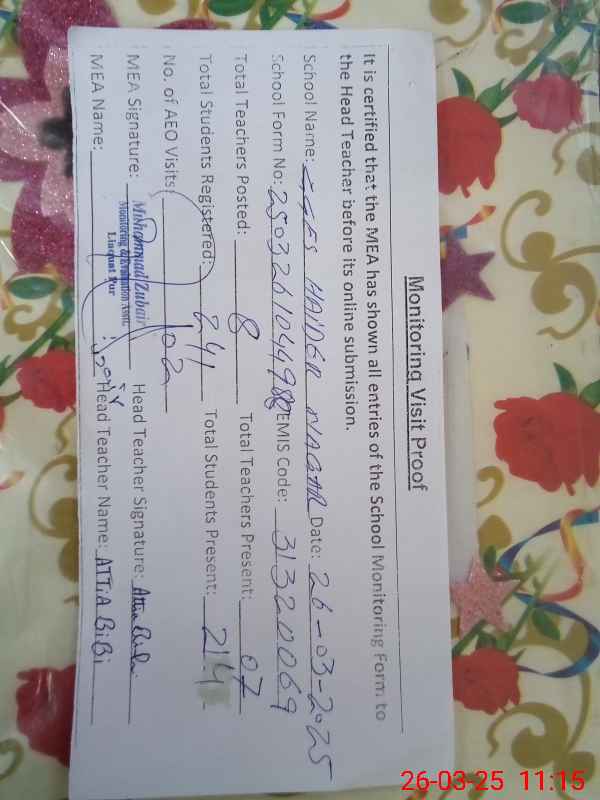 Monitoring Visit Proof
It is certified that the MEA has shown all entries of the School Monitoring Form to
the Head Teacher before its online submission.
School Name: GGES HAIDER NAGAR Date: 26-03-2025
School Form No: 25032610449 EMIS Code: 31320069
Total Teachers Posted: 8 Total Teachers Present: 07
Total Students Registered: 241 Total Students Present: 214
No. of AEO Visits:
MEA Signature: Head Teacher Signature: Attia Bibi
Muhammad Zubair
Monitoring & Evaluation Asstt.
Liaquat Pur
MEA Name: Head Teacher Name: ATTIA BiBi
26-03-25 11:15